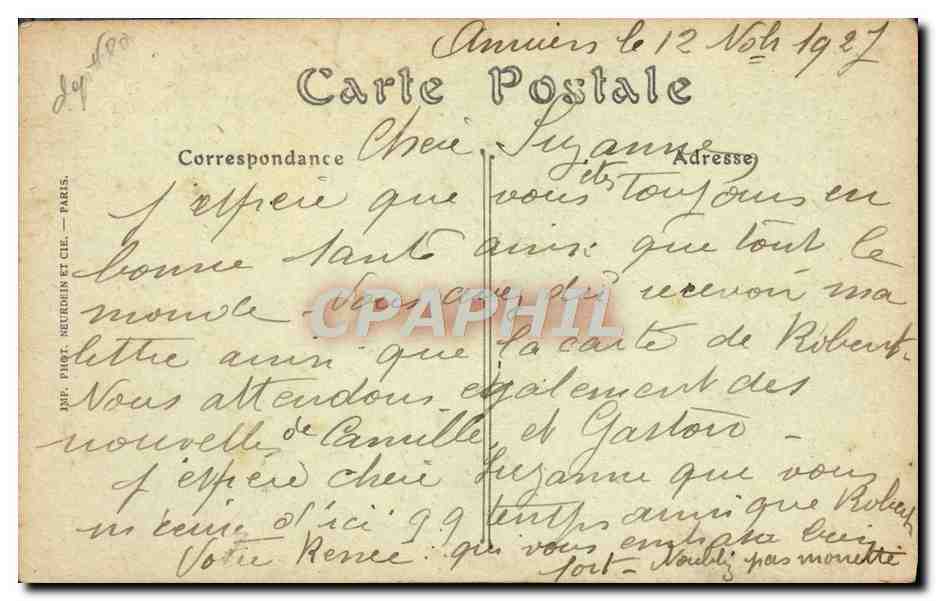 le 12 Nov 1927
Carte Postale
Correspondance
Adresse
Cheie Suzanne
J'espere que vous êtes toujours en
bonne santé ainsi que tout le
monde. Vous avez dû recevoir ma
lettre ainsi que la carte de Robert.
Nous attendons également des
nouvelle de Camille et Gaston -
J'espère cheie Suzanne que vous
d'ici qq temps ainsi que Robert
Votre Renée qui vous embrasse bien
fort - Noubliz pas
IMP. PHOT. NEURDEIN ET CIE. — PARIS.
CPAPHIL